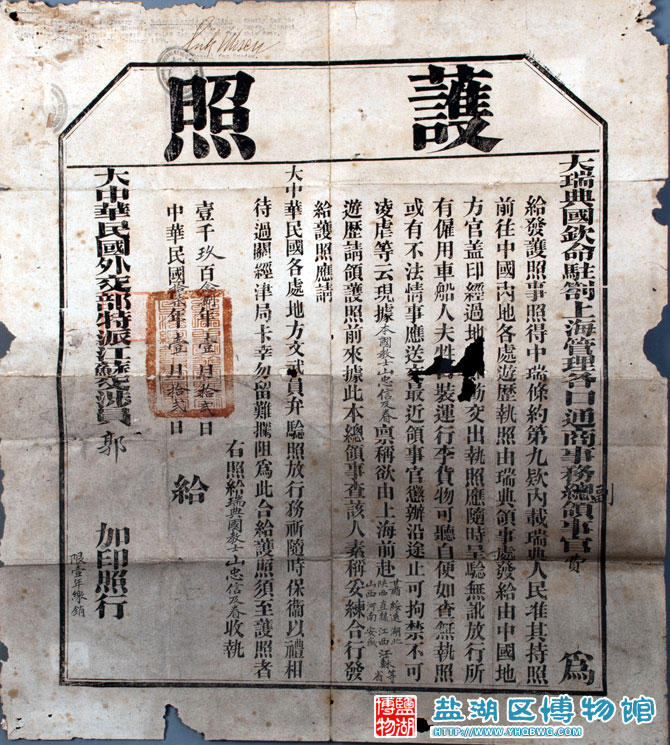 護照
大瑞典國欽命駐劄上海管理各口通商事務總領事官 為
給發護照事照得中瑞條約第九欵內載瑞典人民准其持照
前往中國內地各處遊歷執照由瑞典領事處發給由中國地
方官盖印經過地 飭交出執照應隨時呈驗無訛放行所
有僱用車船人夫牲 裝運行李貨物可聽自便如查無執照
或有不法情事應送交最近領事官懲辦沿途止可拘禁不可
凌虐等云現據本國教士山忠信及眷稟稱欲由上海前赴甘肅 綏遠 湖北 陝西 直隸 江西 江蘇 山西 河南 安徽 等省
遊歷請領護照前來據此本總領事查該人素稱妥練合行發
給護照應請
大中華民國各處地方文武員弁驗照放行務祈隨時保衞以禮相
待過關經津局卡幸勿留難攔阻爲此合給護照須至護照者
右照給瑞典國教士山忠信及眷收執
壹千玖百 年壹月拾 日
中華民國 年壹月拾 日
給
大中華民國外交部特派江蘇交涉員郭 加印照行
限壹年繳銷
鹽湖博物
盐湖区博物馆
HTTP://WWW.YHQBWG.COM